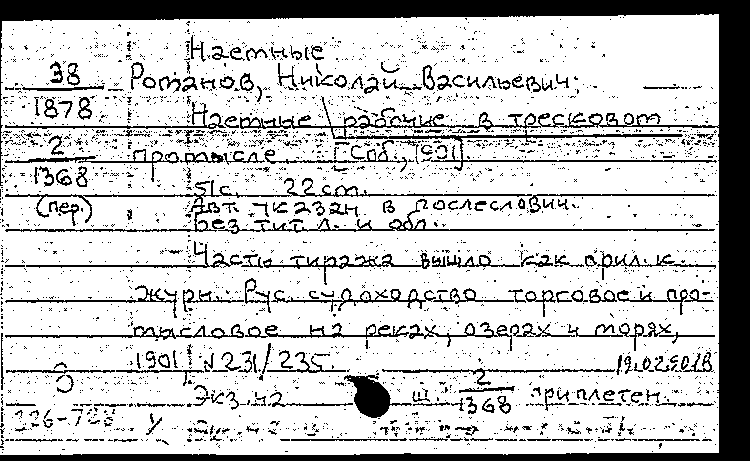 Наемные
38
Романов, Николай Васильевич.
1878
Наемные рабочие в тресковом
2
промысле. [Спб., 1901].
1368
51с. 22 cm.
(пер.)
Авт. указан в послесловии.
Без тит. л. и обл.
Часть тиража вышло как прил. к
журн. Рус. судоходство торговое и про-
мысловое на реках, озерах и морях,
1901, №231/235.
Экз. на
ш. 2
1368
приплетен.